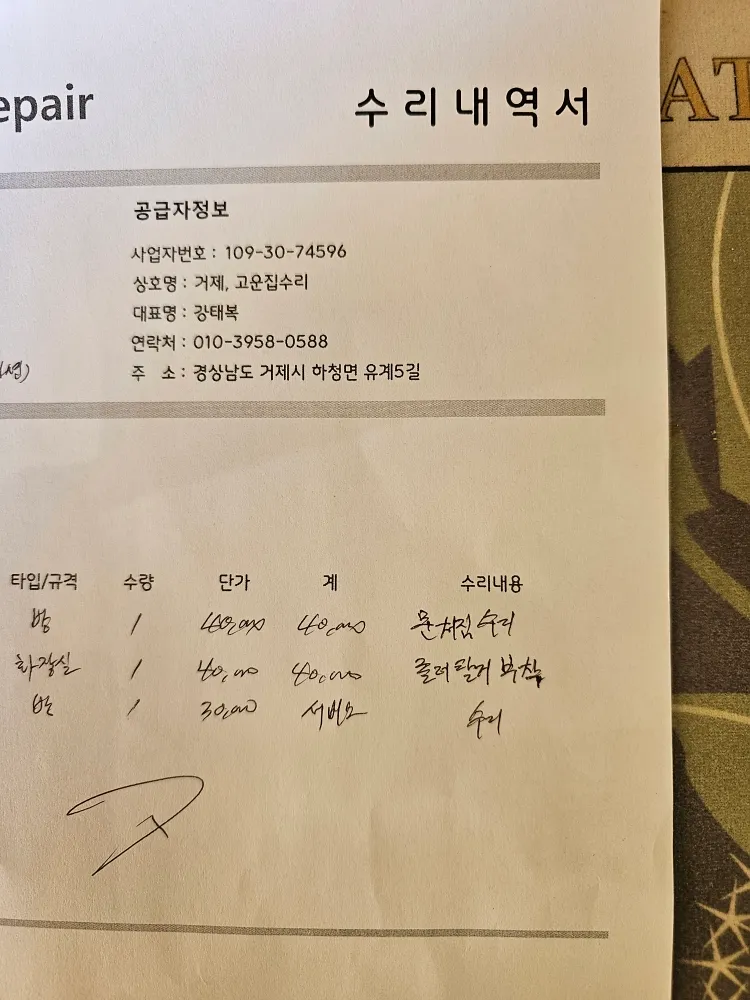 epair 수리내역서
공급자정보
사업자번호 : 109-30-74596
상호명 : 거제, 고운집수리
대표명 : 강태복
연락처 : 010-3958-0588
주 소 : 경상남도 거제시 하청면 유계5길
타입/규격 수량 단가 계 수리내용
방 1 40,000 40,000 문처짐 수리
화장실 1 40,000 40,000 졸리팔거 부착
1 30,000 서비스 수리
TA